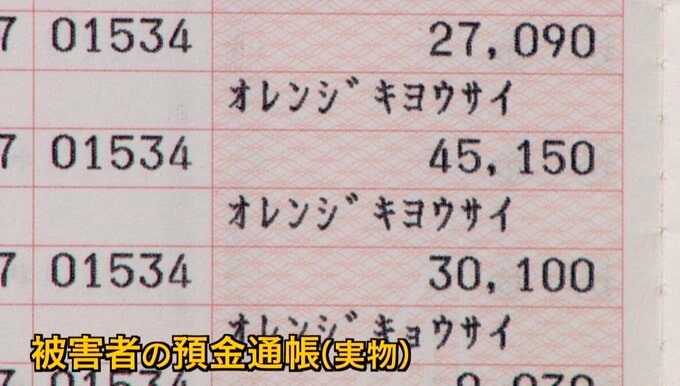 7 01534 27,090
オレンジ キヨウサイ
7 01534 45,150
オレンジ キヨウサイ
7 01534 30,100
オレンジ キョウサイ
被害者の預金通帳(実物)